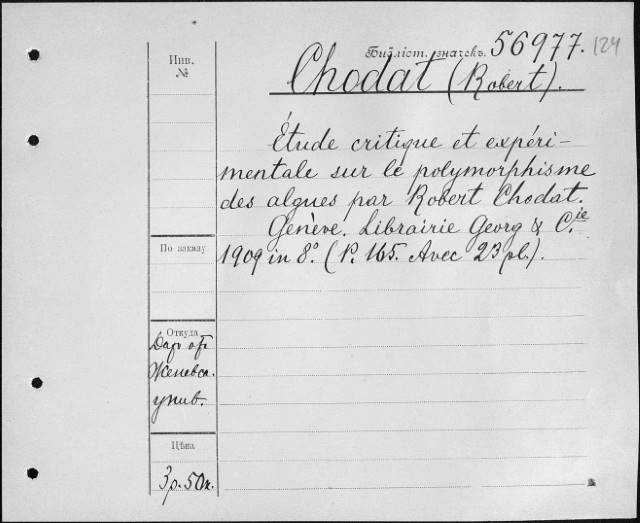 Инв.
№
Библіот. значекъ. 56977. 124
Chodat (Robert).
Étude critique et expéri-
mentale sur le polymorphisme
des algues par Robert Chodat.
Genève. Librairie Georg & C.ie
1909 in 8°. (P. 165. Avec 23 pl.).
По заказу
Откуда
Даръ отъ
Женевск.
унив.
Цѣна
3 р. 50 к.